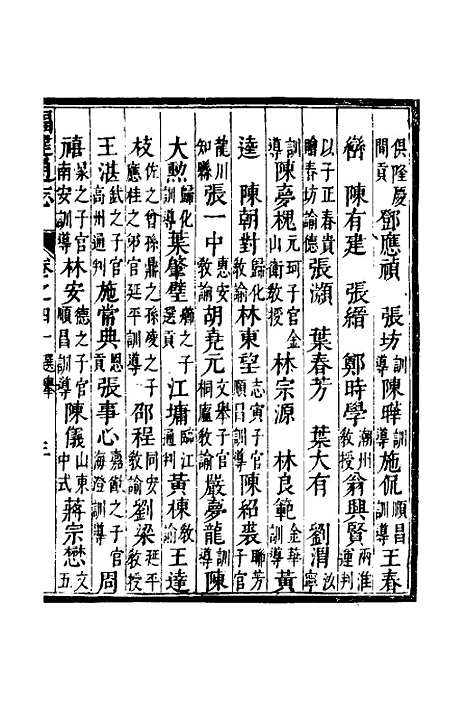 俱隆慶間貢鄧應禎 張坊訓導陳曄訓導施侃順昌訓導王春
巒 陳有建 張縉 鄭時學潮州教授翁興賢兩淮運判
以子正春貴贈春坊諭德張灝 葉春芳 葉大有 劉渭汝寧
訓導陳夢槐元珂子官金山衛教授林宗源 林良範金華訓導黃
逵 陳朝對歸化教諭林東望志寅子官順昌訓導陳紹裘聯芳子官
龍川知縣張一中惠安教諭胡堯元文舉子官桐廬教諭嚴夢龍訓導陳
大勲歸化訓導葉肇璧 之子選貢江墉臨江通判黃棟教諭王達
枝佐之曾孫應桂之 鼎之孫凌之子官延平訓導邵程同安教諭劉梁延平教授
王湛 之子官高州通判施常典恩貢張事心嘉 之子官海澄訓導周
禧 之子官南安訓導林安德之子官順昌訓導陳儀山東中式蔣宗懋文五
福建通志
卷之四十一 選舉 三